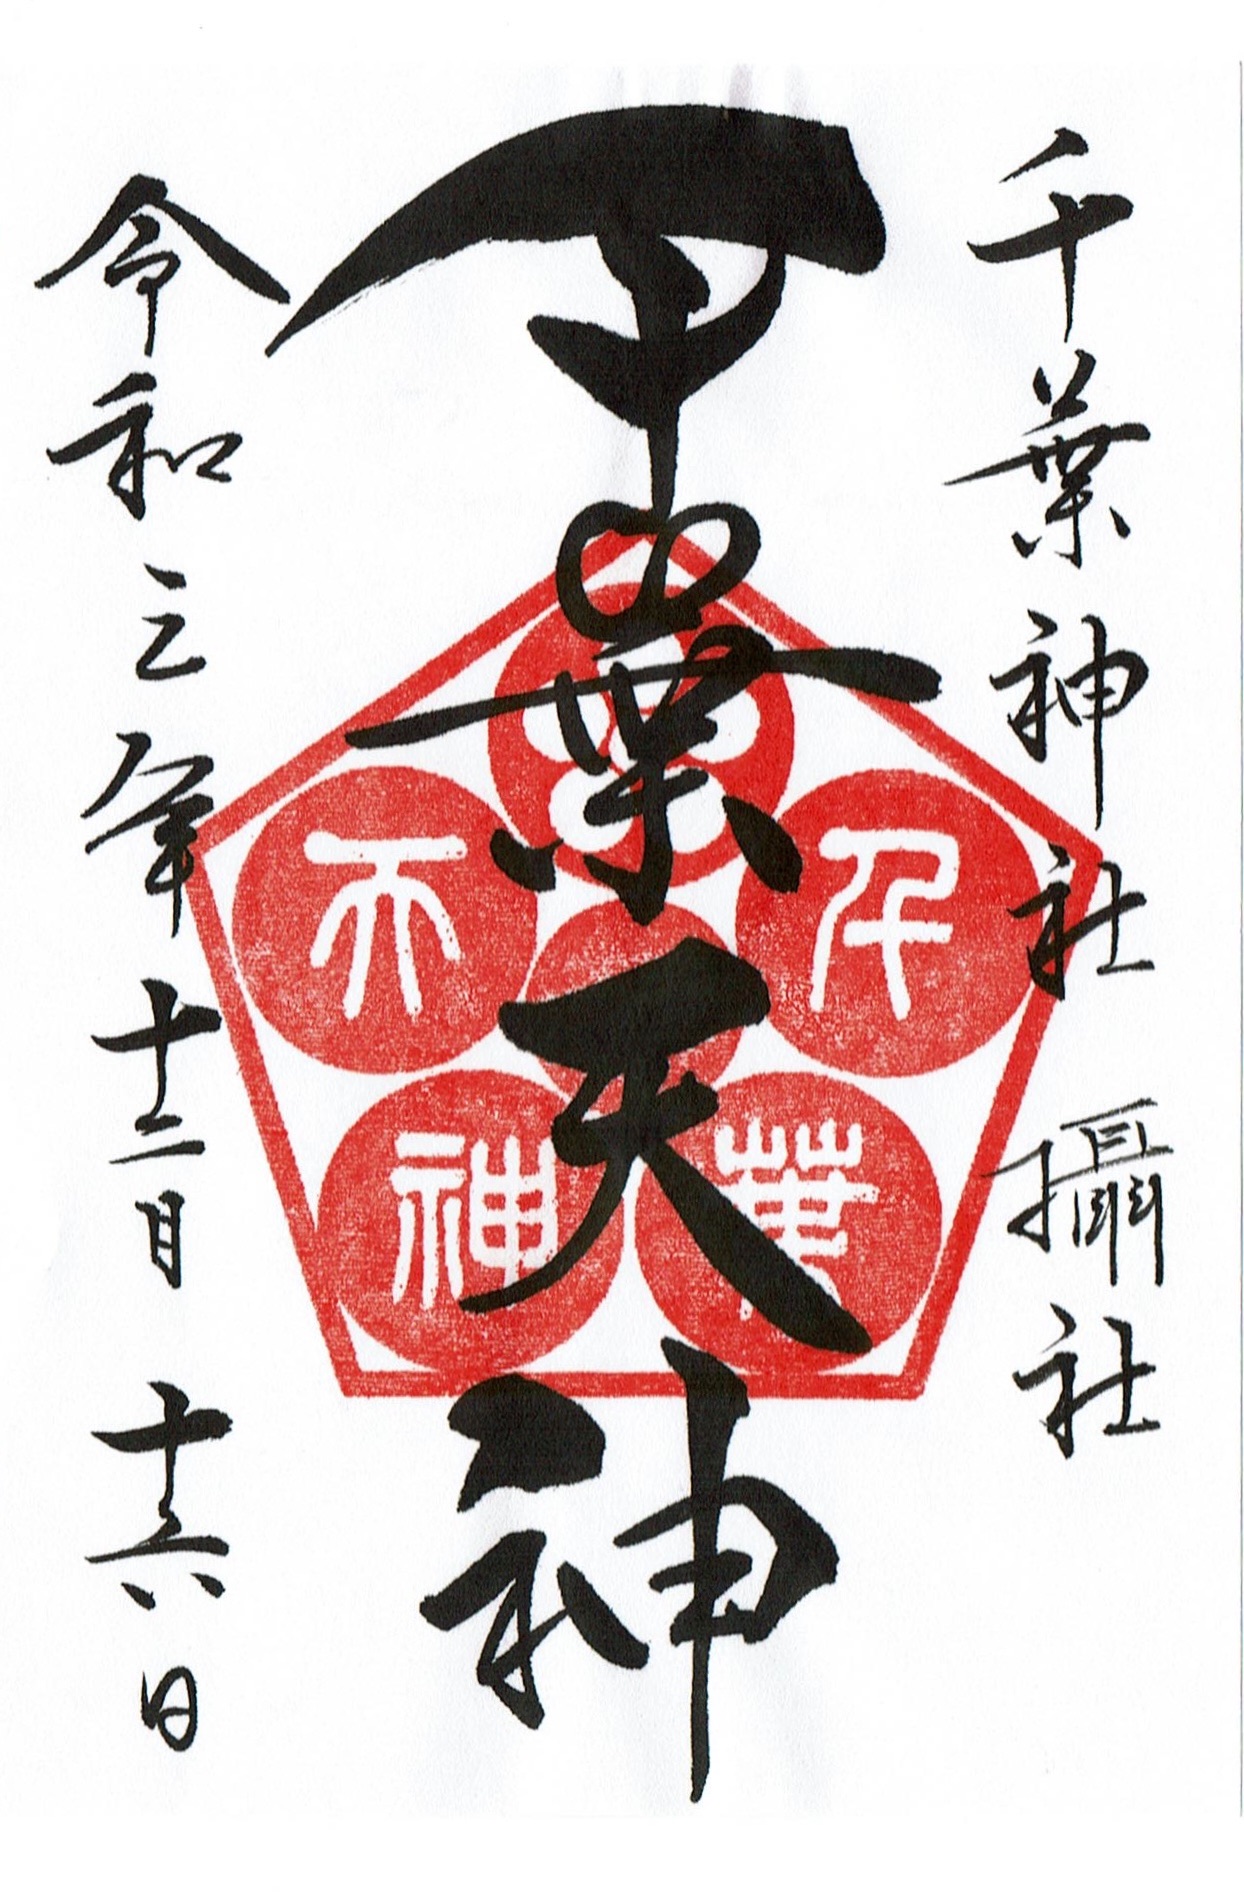 千葉神社 攝社
千葉天神
令和三年十二月十六日
千
葉
天
神